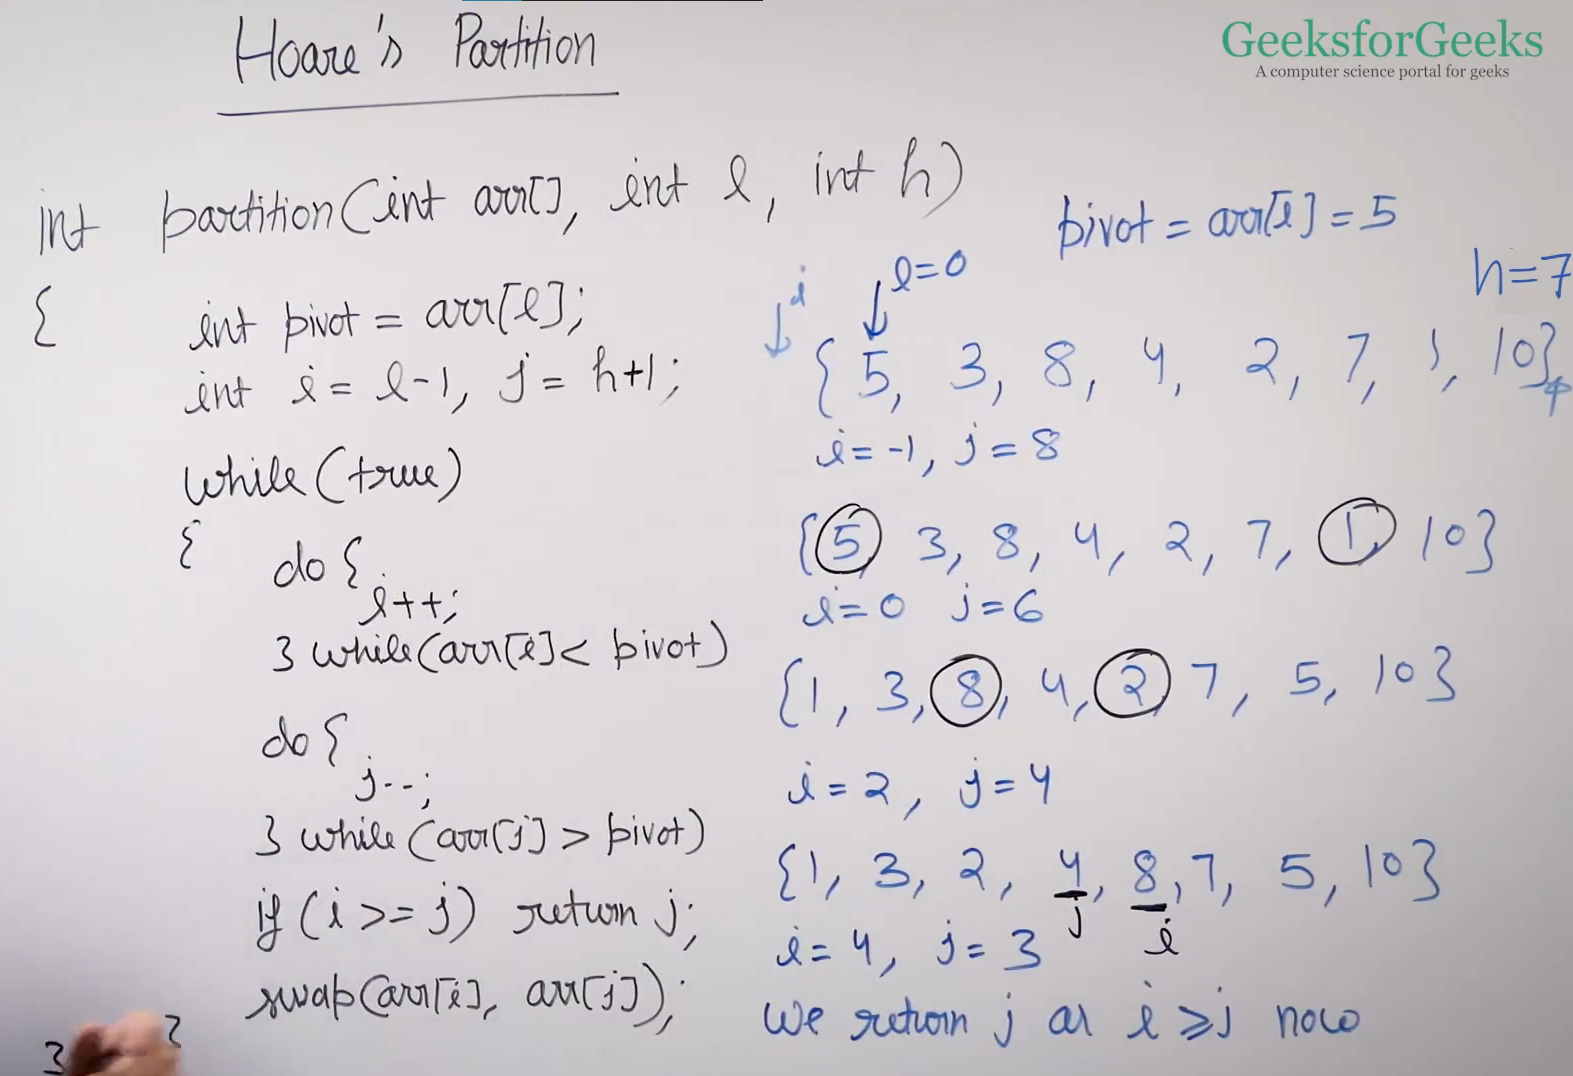 Hoare's Partition
GeeksforGeeks
A computer science portal for geeks
int partition(int arr[], int l, int h)
{
int pivot = arr[l];
int i = l-1, j = h+1;
while(true)
{
do {
i++;
} while(arr[i] < pivot)
do {
j--;
} while (arr[j] > pivot)
if (i >= j) return j;
swap(arr[i], arr[j]);
}
}
pivot = arr[l] = 5
i
l=0
h=7
{5, 3, 8, 4, 2, 7, 1, 10}
i = -1, j = 8
{5, 3, 8, 4, 2, 7, 1, 10}
i=0 j=6
{1, 3, 8, 4, 2, 7, 5, 10}
i = 2, j = 4
{1, 3, 2, 4, 8, 7, 5, 10}
j i
i = 4, j = 3
We return j as i ≥ j now